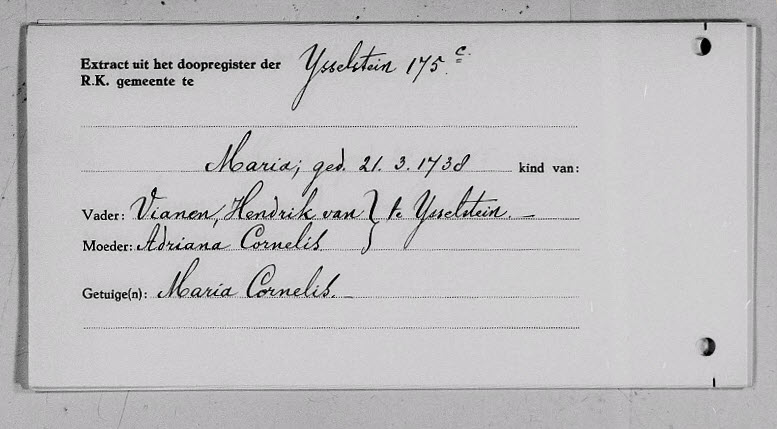 Extract uit het doopregister der Ysselstein 175 c.
R.K. gemeente te
Maria; ged. 21. 3. 1738 kind van:
Vader: Vianen, Hendrik van } te Ysselstein. —
Moeder: Adriana Cornelis
Getuige(n): Maria Cornelis. —